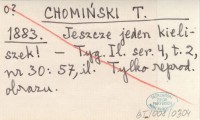 o?
CHOMIŃSKI T.
1883. Jeszcze jeden kieli-
szek! — Tyg. Il. ser. 4, t. 2,
nr 30: 57, il. Tylko reprod.
obrazu.